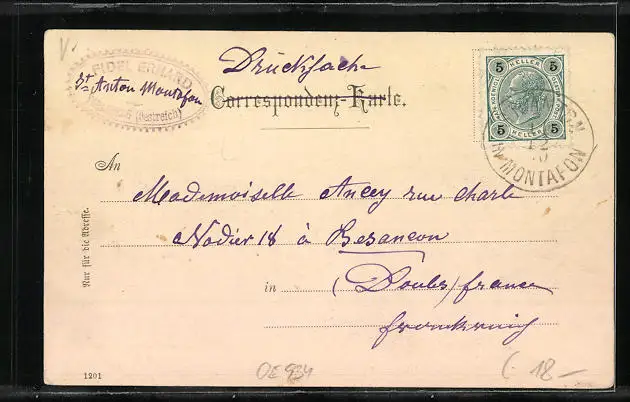 V
FIDEL
St Anton Montafon
(Oestreich)
Drucksache
Correspondenz-Karte.
5 HELLER 5
5 HELLER 5
MONTAFON
An
Mademoiselle Ancey rue Charle
Nodier 18 à Besancon
in (Doubs) france
frankreich
Nur für die Adresse.
1201
OE 934
18-